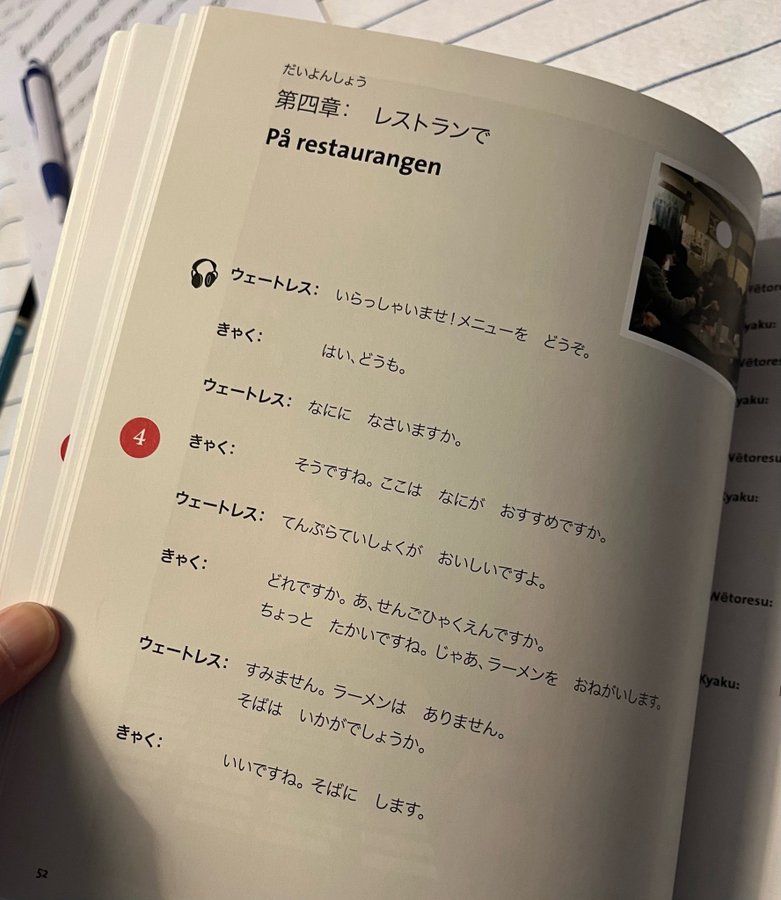 だいよんしょう
第四章： レストランで
På restaurangen
ウェートレス： いらっしゃいませ！メニューを どうぞ。
きゃく： はい、どうも。
ウェートレス： なにに なさいますか。
4
きゃく： そうですね。ここは なにが おすすめですか。
ウェートレス： てんぷらていしょくが おいしいですよ。
きゃく： どれですか。あ、せんごひゃくえんですか。
ちょっと たかいですね。じゃあ、ラーメンを おねがいします。
ウェートレス： すみません。ラーメンは ありません。
そばは いかがでしょうか。
きゃく： いいですね。そばに します。
52
Wētoresu:
Kyaku: